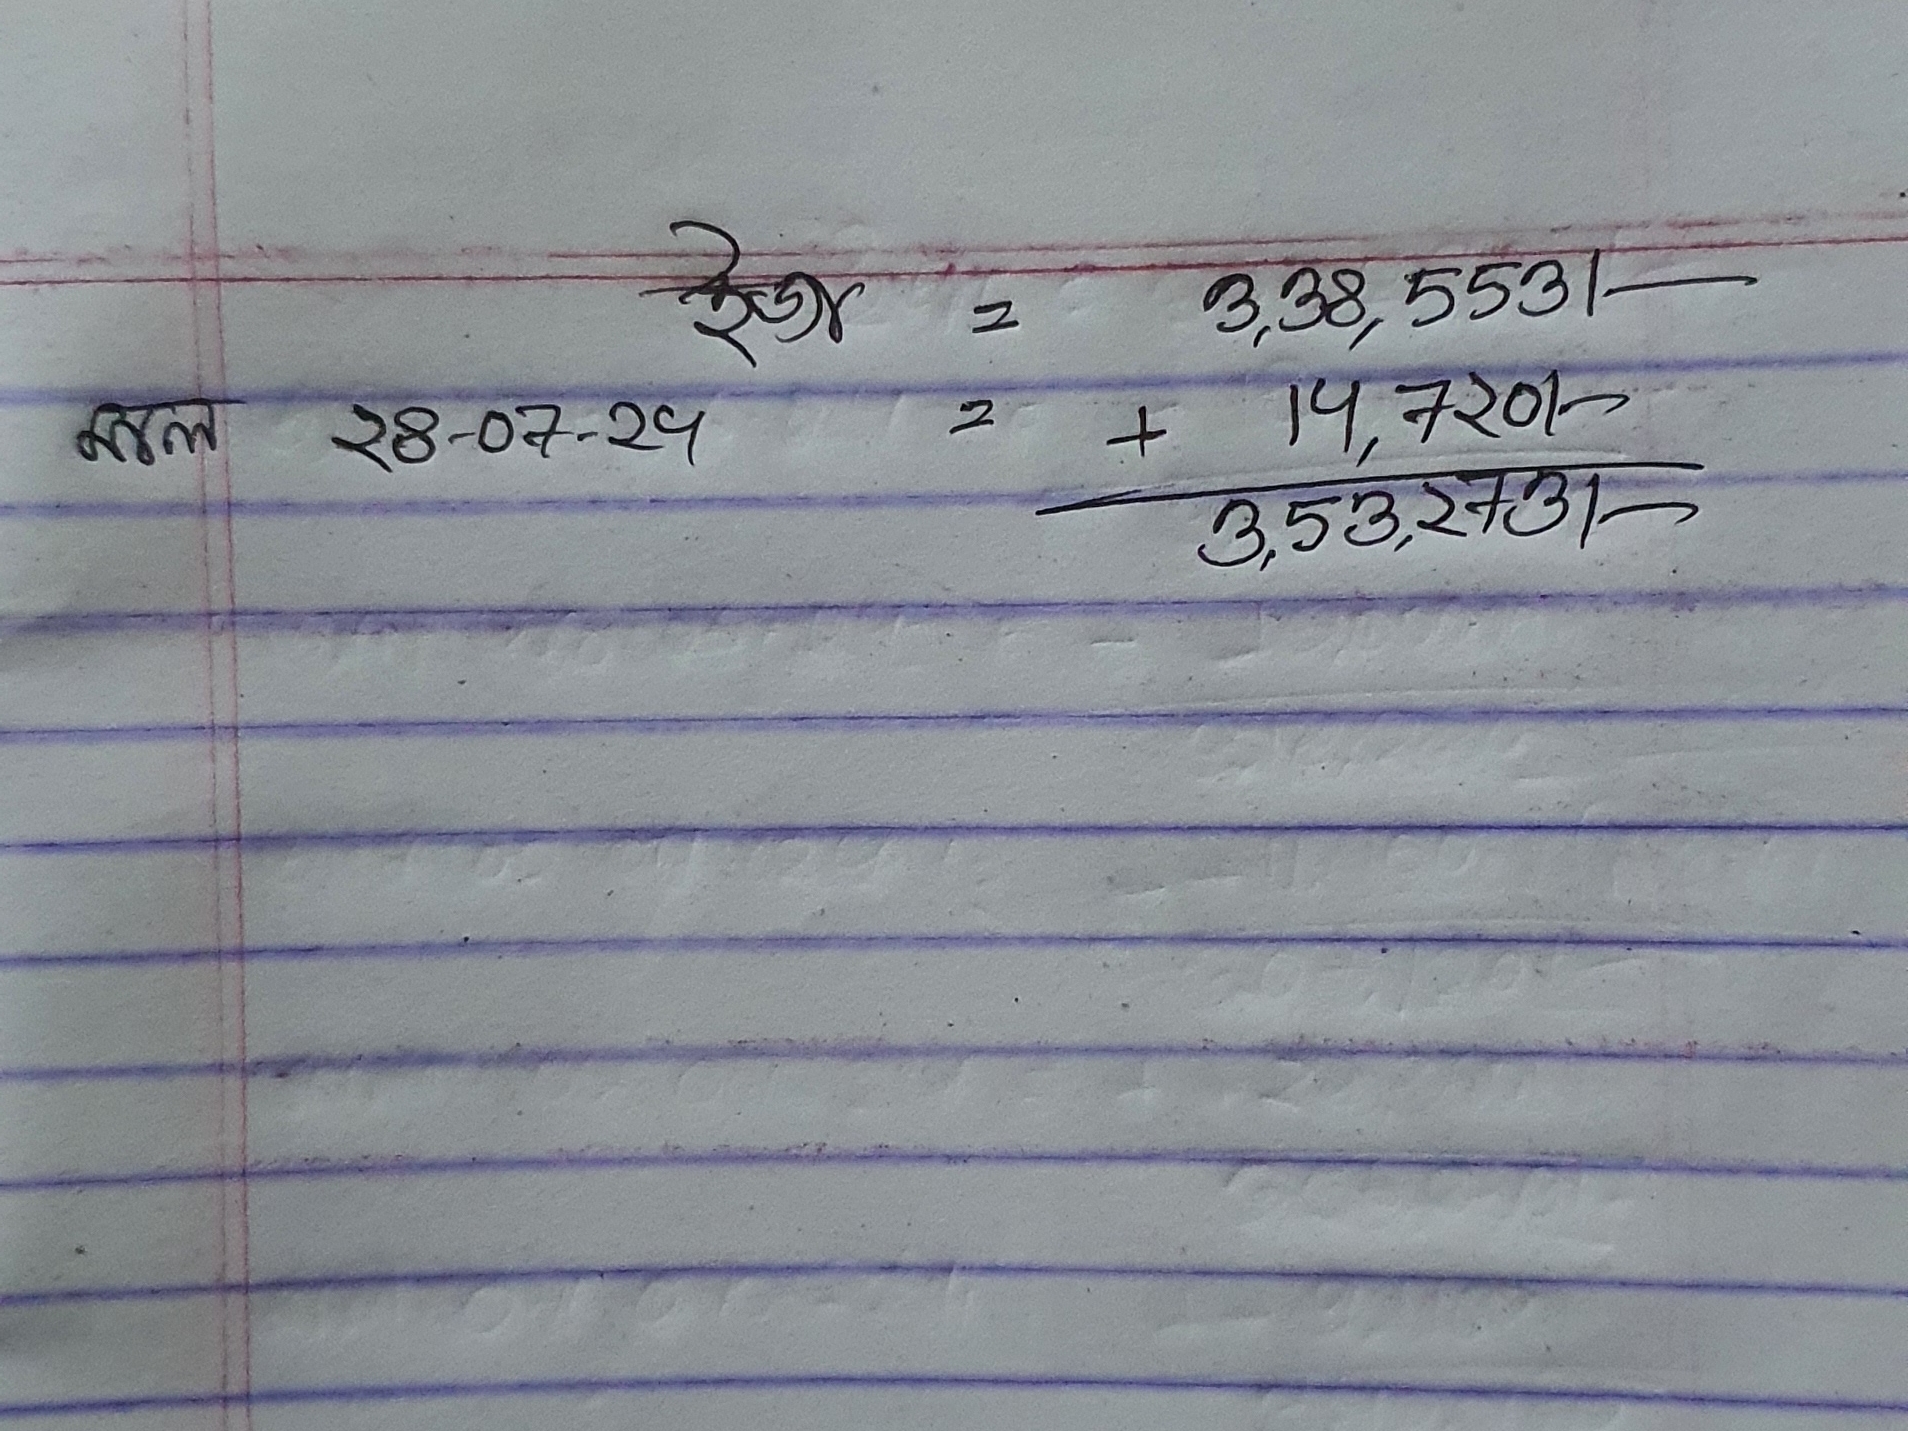 ইজা = 3,38,553/-
মাল 28-07-24 = + 14,720/-
3,53,273/-